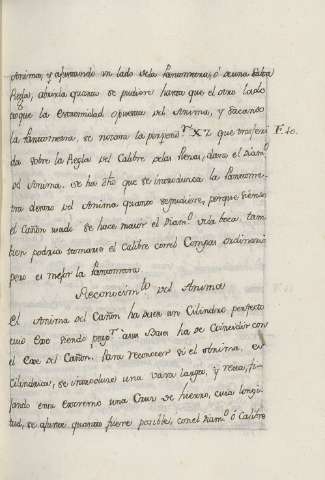 Anima, y ajustando un lado dela Pantometra, ó de una falsa
Regla, abrirla quanto se pudiere hasta que el otro lado
toque la extremidad opuesta del Anima, y sacando
la Pantometra, se notara la perpen.ᵃʳ XZ que trasferi F. 40.
da sobre la Regla del Calibre delas Piezas, dara el Diam.º
del Anima. se ha dho que se introdusca la Pantome-
tra dentro del Anima quanto se pudiere, porque siempre
el Cañon usado se hace maior el Diam.º dela boca, tam-
bien podria tomarse el Calibre con el Compas ordinario
pero es mejor la Pantometra
Reconocim.ᵗº del Anima
El Anima del Cañon ha deser un Cilindro perfecto
cuio Exe siendo perp.ʳ à su Basa ha de Coincidir con
el Exe del Cañon. Para reconocer si el Anima, es
Cilindrica, se introduce una vara larga, y recta, fi-
jando en un extremo una Cruz de hierro, cuia longi-
tud, se ajuste quanto fuere posible, con el Diam.º ó Calibre